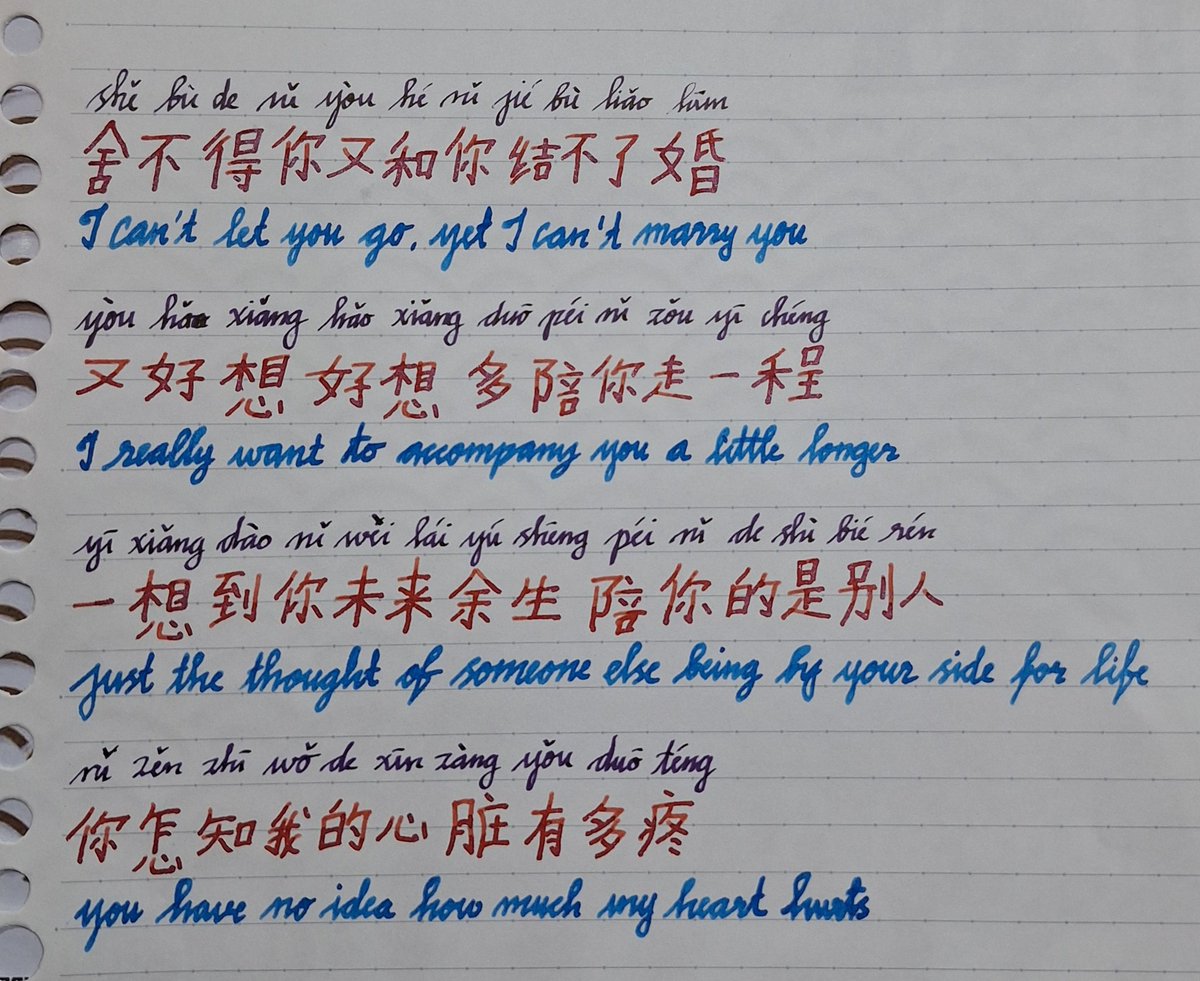 shě bù de nǐ yòu hé nǐ jié bù liǎo hūn
舍不得你又和你结不了婚
I can't let you go, yet I can't marry you
yòu hǎo xiǎng hǎo xiǎng duō péi nǐ zǒu yī chéng
又好想好想多陪你走一程
I really want to accompany you a little longer
yī xiǎng dào nǐ wèi lái yú shēng péi nǐ de shì bié rén
一想到你未来余生陪你的是别人
just the thought of someone else being by your side for life
nǐ zěn zhī wǒ de xīn zàng yǒu duō téng
你怎知我的心脏有多疼
you have no idea how much my heart hurts